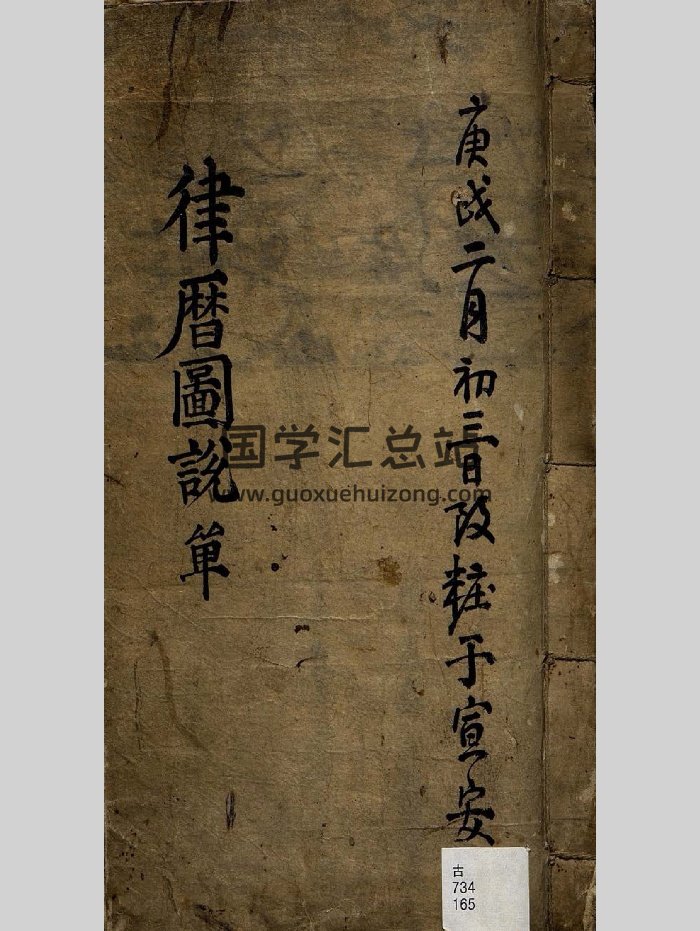 庚戌二月初三日改粧于宣安
律暦圖說 單
国学汇总站
www.guoxuehuizong.com
古
734
165